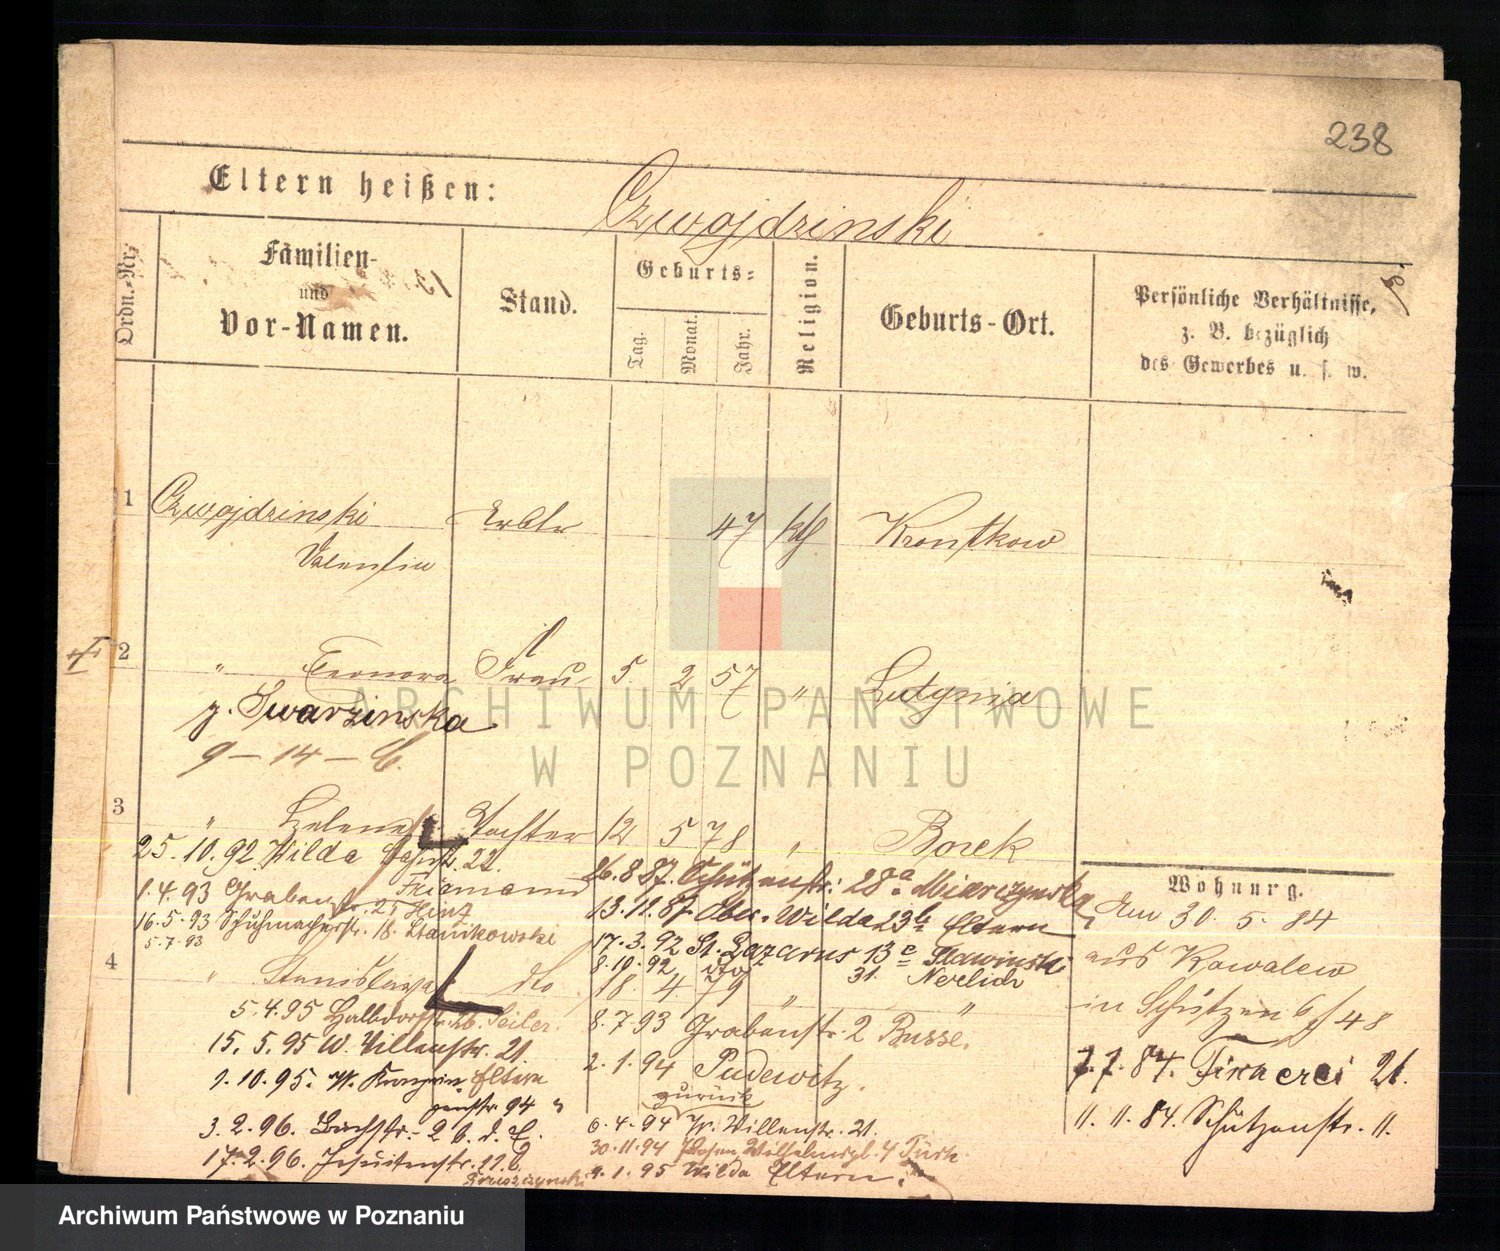 238
Eltern heißen:
Czwojdzinski
Ordn.-Nr.
Familien-
und
Vor-Namen.
Stand.
Geburts-
Tag.
Monat.
Jahr.
Religion.
Geburts-Ort.
Persönliche Verhältnisse,
z. B. bezüglich
des Gewerbes u. s. w.
1 Czwojdzinski
Valentin
47
2 " Eleonora Frau 5. 2 57 " Lutynia
g. Swarzinska
9-14-
3 " Helene Tochter 12 5 78 " Borek
25.10.92 Wilda 22.
1.4.93 Grabenstr. 25 Hinz
16.5.93 Schuhmacherstr. 18. Stanikowski
5.7.93
26.8.87. Schützenstr. 28a
13.11.87. Ober-Wilda 23b Eltern
17.3.92 St. Lazarus 13c Slawinski
8.10.92 dto 31. Nerlich
4 " Stanislawa dto 18. 4. 79 " "
5.4.95 Halbdorfstr. 26. Seiler
15.5.95 W. Villenstr. 21.
1.10.95. W. Kronprinzenstr. 94 Eltern
3.2.96. Bachstr. 2 b. d. E.
17.2.96. Jesuitenstr. 11
8.7.93 Grabenstr. 2 Busse.
2.1.94 Pudewitz.
zurück
6.4.94 W. Villenstr. 21.
30.11.94 Posen, Wilhelmspl. 4 Türk
4.1.95 Wilda Eltern.
Wohnung.
Am 30. 5. 84
aus Kowalew
in Schützen 6/48
7.7.84. 21.
11.11.84. Schützenstr. 11.
ARCHIWUM PAŃSTWOWE
W POZNANIU
Archiwum Państwowe w Poznaniu